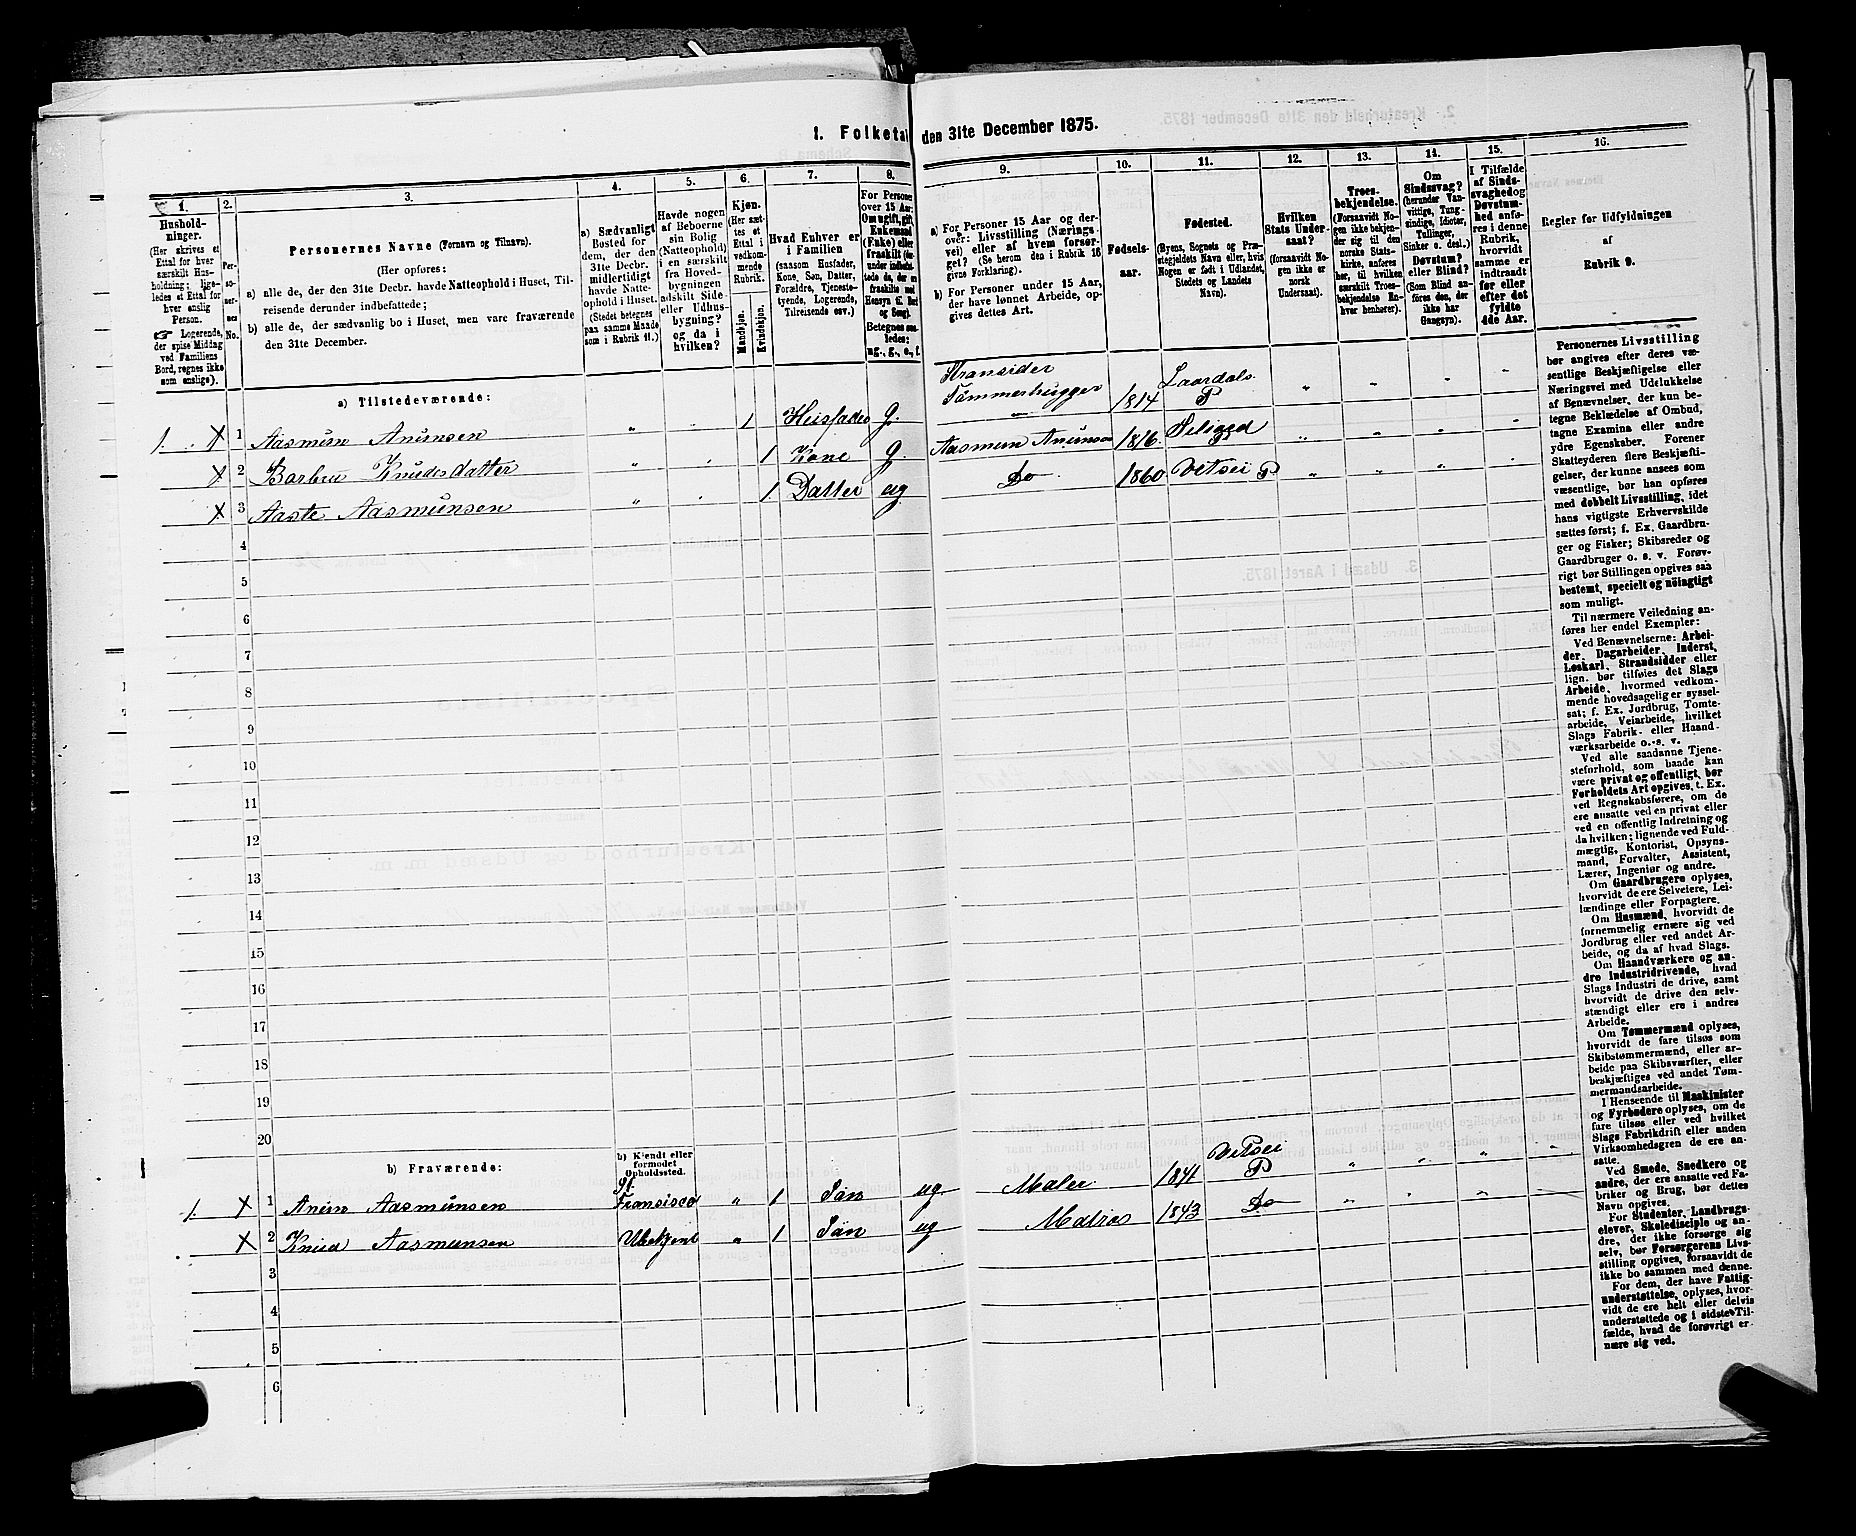 1. Folketal den 31te December 1875.
1.
Hushold-
ninger.
(Her skrives et
Ettal for hver
særskilt Hus-
holdning; lige-
ledes et Ettal for
hver enslig
Person.
☞ Logerende,
der spise Middag
ved Familiens
Bord, regnes ikke
som enslige).
2.
Per-
so-
ner-
nes
No.
3.
Personernes Navne (Fornavn og Tilnavn).
(Her opføres:
a) alle de, der den 31te Decbr. havde Natteophold i Huset, Til-
reisende derunder indbefattede;
b) alle de, der sædvanlig bo i Huset, men vare fraværende
den 31te December.
4.
a) Sædvanligt
Bosted for
dem, der den
31te Decbr.
midlertidigt
havde Natte-
ophold i Huset.
(Stedet betegnes
paa samme Maade
som i Rubrik 11.)
5.
Havde nogen
af Beboerne
sin Bolig
(Natteophold)
i en særskilt
fra Hoved-
bygningen
adskilt Side-
eller Udhus-
bygning?
og da i
hvilken?
6.
Kjøn.
(Her sæt-
tes et
Ettal i
vedkom-
mende
Rubrik.
Mandkjøn.
Kvindekjøn.
7.
Hvad Enhver er
i Familien
(saasom Husfader,
Kone, Søn, Datter,
Forældre, Tjeneste-
tyende, Logerende,
Tilreisende osv.)
8.
For Personer
over 15 Aar:
Om ugift, gift,
Enkemand
(Enke) eller
fraskilt
Betegnes saa-
ledes:
ug., g., e., f.
9.
a) For Personer 15 Aar og der-
over: Livsstilling (Nærings-
vei) eller af hvem forsør-
get? (Se herom den i Rubrik 16
givne Forklaring).
b) For Personer under 15 Aar,
der have lønnet Arbeide, op-
gives dettes Art.
10.
Fødsels-
aar.
11.
Fødested.
(Byens, Sognets og Præ-
stegjeldets Navn eller, hvis
Nogen er født i Udlandet,
Stedets og Landets
Navn).
12.
Hvilken
Stats Under-
saat?
(forsaavidt No-
gen ikke er
norsk
Undersaat).
13.
Troes-
bekjendelse.
(Forsaavidt No-
gen ikke bekjen-
der sig til den
norske Stats-
kirke, anføres
her, til hvilken
særskilt Troes-
bekjendelse En-
hver henhører).
14.
Om
Sindssvag?
(herunder Van-
vittige, Tung-
sindige, Idioter,
Tullinger,
Sinker o. desl.)
Døvstum?
eller Blind?
(Som Blind an-
føres den, der
ikke har
Gangsyn).
15.
I Tilfælde
af Sinds-
svaghed og
Døvstum-
hed anfø-
res i denne
Rubrik,
hvorvidt
samme er
indtraadt
før eller
efter det
fyldte
4de Aar.
16.
Regler for Udfyldningen
af
Rubrik 9.
a) Tilstedeværende:
1. X 1 Aasmun Anunsen " " 1 Husfader g. Stransider Tømmerhugger 1814 Laardals P " " " "
X 2 Barbru Knudsdatter " " 1 Kone g Aasmun Anunsen 1816 Seligjed P " " " "
X 3 Aaste Aasmunsen " " 1 Datter ug Do 1860 Vetsei P " " " "
4
5
6
7
8
9
10
11
12
13
14
15
16
17
18
19
20
b) Fraværende:
b) Kjendt eller
formodet
Opholdssted.
1. X 1 Anun Aasmunsen St. Fransisco " 1 Søn ug Maler 1841 Vetsei P " " " "
X 2 Knud Aasmunsen Ubekjent " 1 Søn ug Matros 1843 Do " " " "
3
4
5
6
Personernes Livsstilling
bør angives efter deres væ-
sentlige Beskjæftigelse eller
Næringsvei med Udelukkelse
af Benævnelser, der kun be-
tegne Beklædelse af Ombud,
tagne Examina eller andre
ydre Egenskaber. Forener
Skatteyderen flere Beskjæfti-
gelser, der kunne ansees som
væsentlige, bør han opføres
med dobbelt Livsstilling, idet
hans vigtigste Erhvervskilde
sættes først; f. Ex. Gaardbru-
ger og Fisker; Skibsreder og
Gaardbruger o. s. v. Forøv-
rigt bør Stillingen opgives saa
bestemt, specielt og nöiagtigt
som muligt.
Til nærmere Veiledning an-
føres her endel Exempler:
Ved Benævnelserne: Arbei-
der, Dagarbeider, Inderst,
Løskarl, Strandsidder eller
lign. bør tilføies det Slags
Arbeide, hvormed vedkom-
mende hovedsagelig er syssel-
sat; f. Ex. Jordbrug, Tomte-
arbeide, Veiarbeide, hvilket
Slags Fabrik- eller Haand-
værksarbeide o.-s. v.
Ved alle saadanne Tjene-
steforhold, som baade kan
være privat og offentligt, bør
Forholdets Art opgives, t. Ex.
ved Regnskabsførere, om de
ere ansatte ved en privat eller
ved en offentlig Indretning og
da hvilken; lignende ved Fuld-
mægtig, Kontorist, Opsyns-
mand, Forvalter, Assistent,
Lærer, Ingeniør og Andre.
Om Gaardbrugere oplyses,
hvorvidt de ere Selveiere, Lei-
lændinge eller Forpagtere.
Om Husmænd, hvorvidt de
fornemmelig ernære sig ved
Jordbrug eller ved andet Ar-
beide, og da af hvad Slags.
Om Haandværkere og an-
dre Industridrivende, hvad
Slags Industri de drive, samt
hvorvidt de drive den selv-
stændigt eller ere i andres
Arbeide.
Om Tømmermænd oplyses,
hvorvidt de fare tilsøs som
Skibstømmermænd, eller ar-
beide paa Skibsværfter, eller
beskjæftiges ved andet Tøm-
mermandsarbeide.
I Henseende til Maskinister
og Fyrbødere oplyses, om de
fare tilsøs eller ved hvilket
Slags Fabrikdrift eller anden
Virksomhedsgren de ere an-
satte.
Ved Smede, Snedkere og
andre, der ere ansatte ved Fa-
briker og Brug, bør dettes
Navn opgives.
For Studenter, Landbrugs-
elever, Skoledisciple og an-
dre, der ikke forsørge sig
selv, bør Forsørgerens Livs-
stilling opgives, forsaavidt de
ikke bo sammen med denne.
For dem, der have Fattig-
understøttelse, oplyses, hvor-
vidt de ere helt eller delvis
understøttede og i sidste Til-
fælde, hvad de forøvrigt er-
nære sig ved.